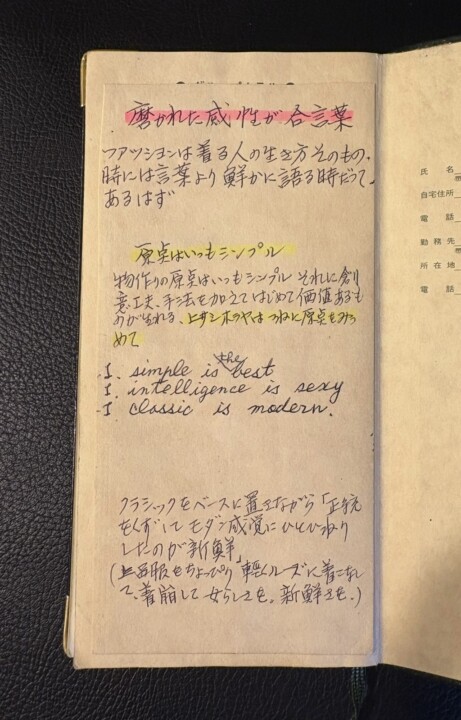 磨かれた感性が合言葉
ファッションは着る人の生き方そのもの。
時には言葉より鮮かに語る時だって
あるはず
原点はいつもシンプル
物作りの原点はいつもシンプル それに創
意工夫、手法を加えてはじめて価値あるも
のが生れる、つねに原点をみつ
めて
1. simple is the best
1. intelligence is sexy
1. classic is modern.
クラシックをベースに置きながら「正統
をくずしてモダン感覚にひとひねり
したのが新鮮」
服をちょっぴり軽くルーズに着こなし
て、着崩して女らしさを。新鮮さを。)
氏名
自宅住所
電話
勤務先
所在地
電話